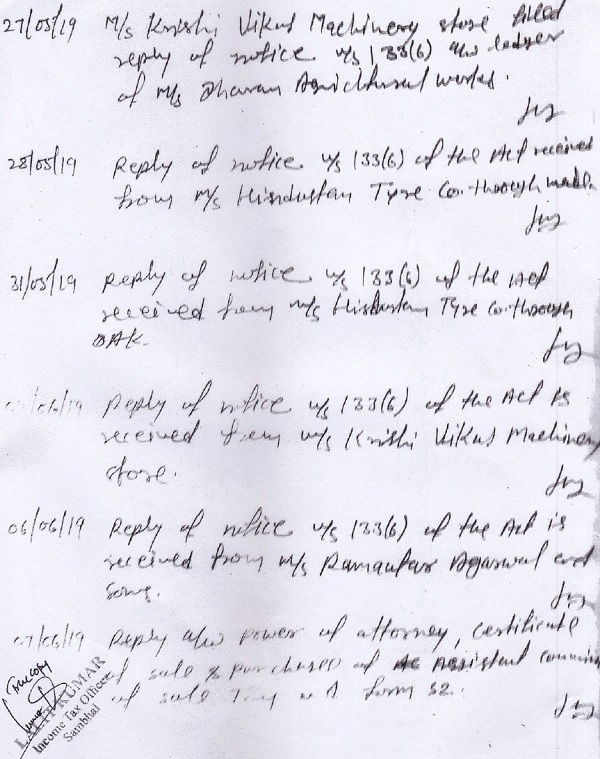 27/05/19 M/s Krishi Vikas Machinery store filed
reply of notice u/s 133(6) a/w ledger
of M/s Dharam Agricultural works.
28/05/19 Reply of notice u/s 133(6) of the Act received
from M/s Hindustan Tyre Co. through mail.
31/05/19 Reply of notice u/s 133(6) of the Act
received from M/s Hindustan Tyre Co. through
DAK.
/06/19 Reply of notice u/s 133(6) of the Act is
received from M/s Krishi Vikas Machinery
store.
06/06/19 Reply of notice u/s 133(6) of the Act is
received from M/s Ramautar Agarwal and
Sons.
07/06/19 Reply a/w power of attorney, certificate
of sale & purchased of Assistant
of sale form 52.
True copy
LALIT KUMAR
Income Tax Officer
Sambhal